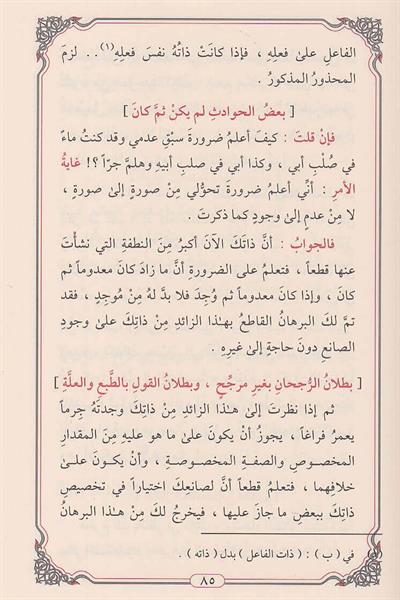 الفاعلِ علىٰ فعلِهِ ، فإذا كانَتْ ذاتُهُ نفسَ فعلِهِ(١) . . لزمَ
المحذورُ المذكورُ .
[ بعضُ الحوادثِ لم يكنْ ثمَّ كانَ ]
فإنْ قلتَ : كيفَ أعلمُ ضرورةَ سبْقِ عدمي وقد كنتُ ماءً
في صُلْبِ أبي ، وكذا أبي في صلبِ أبيهِ وهلمَّ جرّاً ؟! غايةُ
الأمرِ : أنِّي أعلمُ ضرورةَ تحوُّلي مِنْ صورةٍ إلىٰ صورةٍ ،
لا مِنْ عدمٍ إلىٰ وجودٍ كما ذكرتَ .
فالجوابُ : أنَّ ذاتَكَ الآنَ أكبرُ مِنَ النطفةِ التي نشأتَ
عنها قطعاً ، فتعلمُ على الضرورةِ أنَّ ما زادَ كانَ معدوماً ثم
كانَ ، وإذا كانَ معدوماً ثم وُجِدَ فلا بدَّ لهُ مِنْ مُوجِدٍ ، فقد
تمَّ لكَ البرهانُ القاطعُ بهـٰذا الزائدِ مِنْ ذاتِكَ علىٰ وجودِ
الصانعِ دونَ حاجةٍ إلىٰ غيرِهِ .
[ بطلانُ الرُّجحانِ بغيرِ مرجِّحٍ ، وبطلانُ القولِ بالطَّبعِ والعلَّةِ ]
ثم إذا نظرتَ إلىٰ هـٰذا الزائدِ مِنْ ذاتِكَ وجدتَهُ جِرماً
يعمرُ فراغاً ، يجوزُ أنْ يكونَ علىٰ ما هو عليهِ مِنَ المقدارِ
المخصـوصِ والصفـةِ المخصـوصـةِ ، وأنْ يكـونَ علـىٰ
خلافِهما ، فتعلمُ قطعاً أنَّ لصانعِكَ اختياراً في تخصيصِ
ذاتِكَ ببعضِ ما جازَ عليها ، فيخرجُ لكَ مِنْ هـٰذا البرهانِ
(١) في ( ب ) : ( ذات الفاعل ) بدل ( ذاته ) .
٨٥